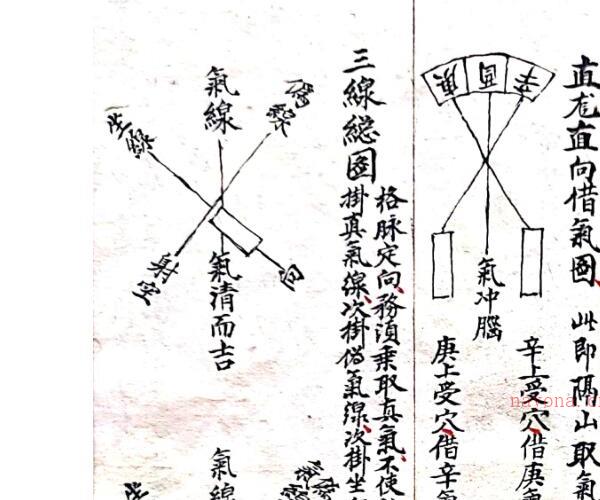 直龙直向借氣圖
此即隔山取氣
辛
酉
庚
氣冲腦
辛上受穴借庚
庚上受穴借辛
三線総圖
格脉定向務須乗取真氣不使
掛真氣線次掛偹氣線次掛坐
氣線
偹線
坐線
向
射空
氣清而吉
氣線